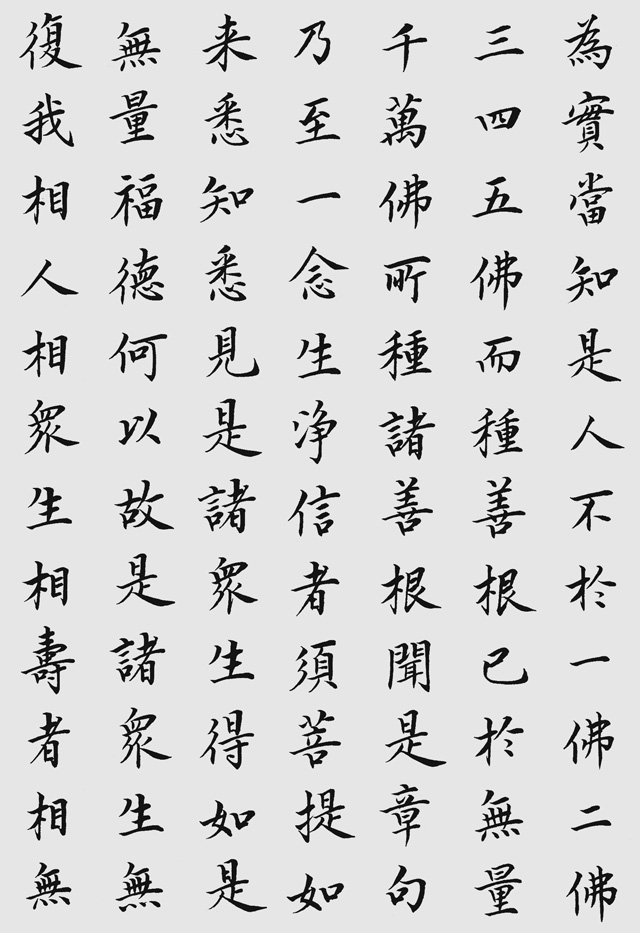 為實當知是人不於一佛二佛
三四五佛而種善根已於無量
千萬佛所種諸善根聞是章句
乃至一念生净信者須菩提如
来悉知悉見是諸衆生得如是
無量福德何以故是諸衆生無
復我相人相衆生相壽者相無